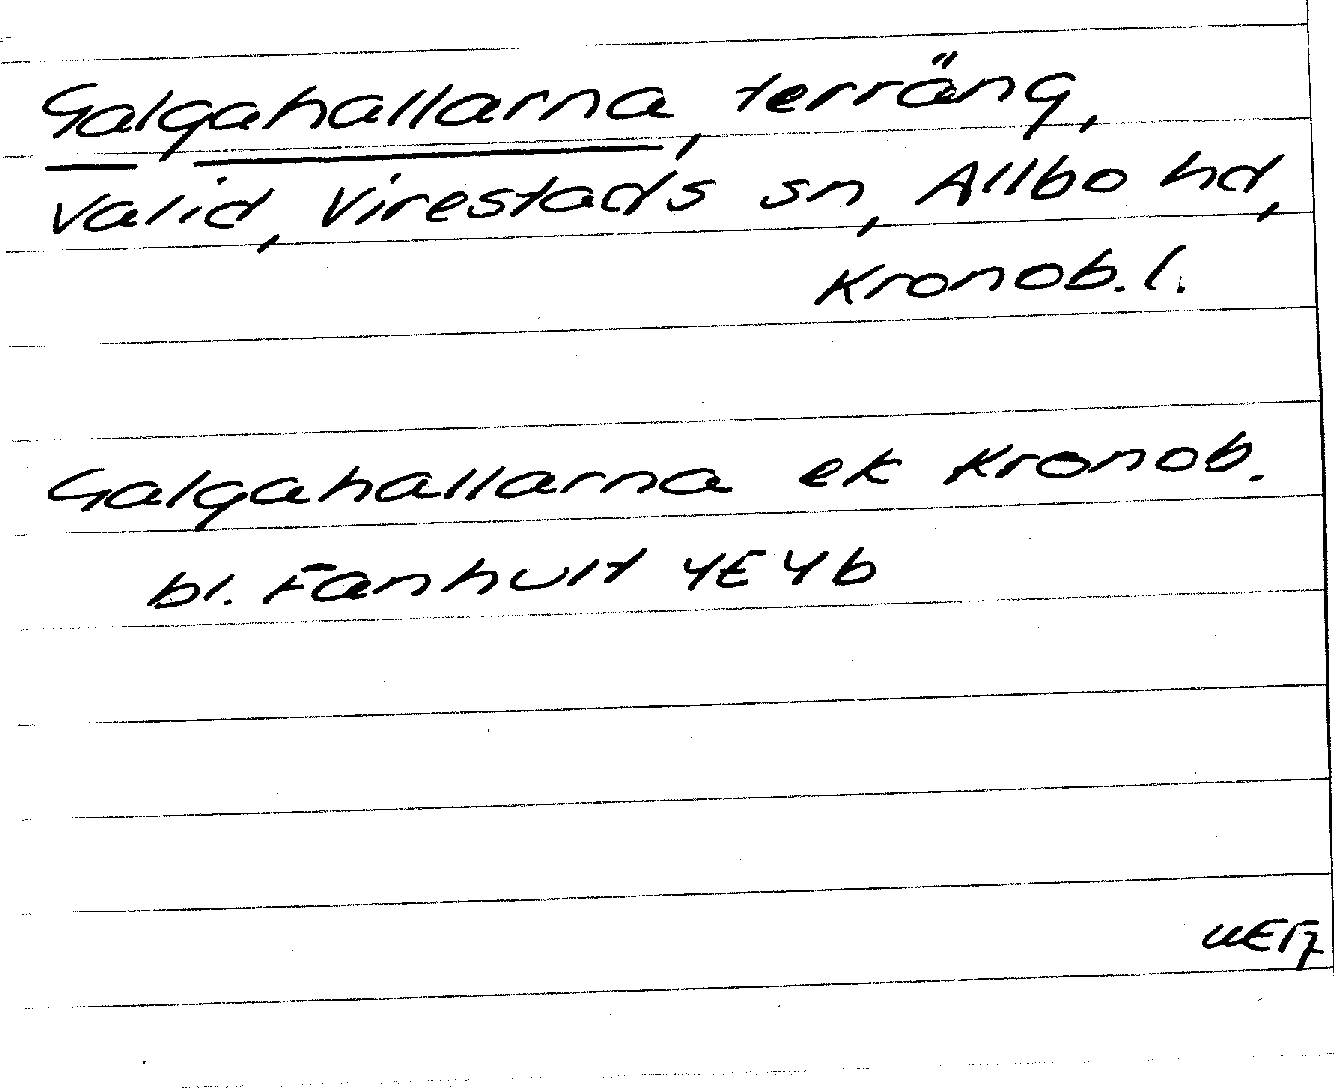 Galgahallarna, terräng,
Valid, Virestads sn, Allbo hd,
Kronob. l.
Galgahallarna ek Kronob.
bl. Fanhult 4E4b